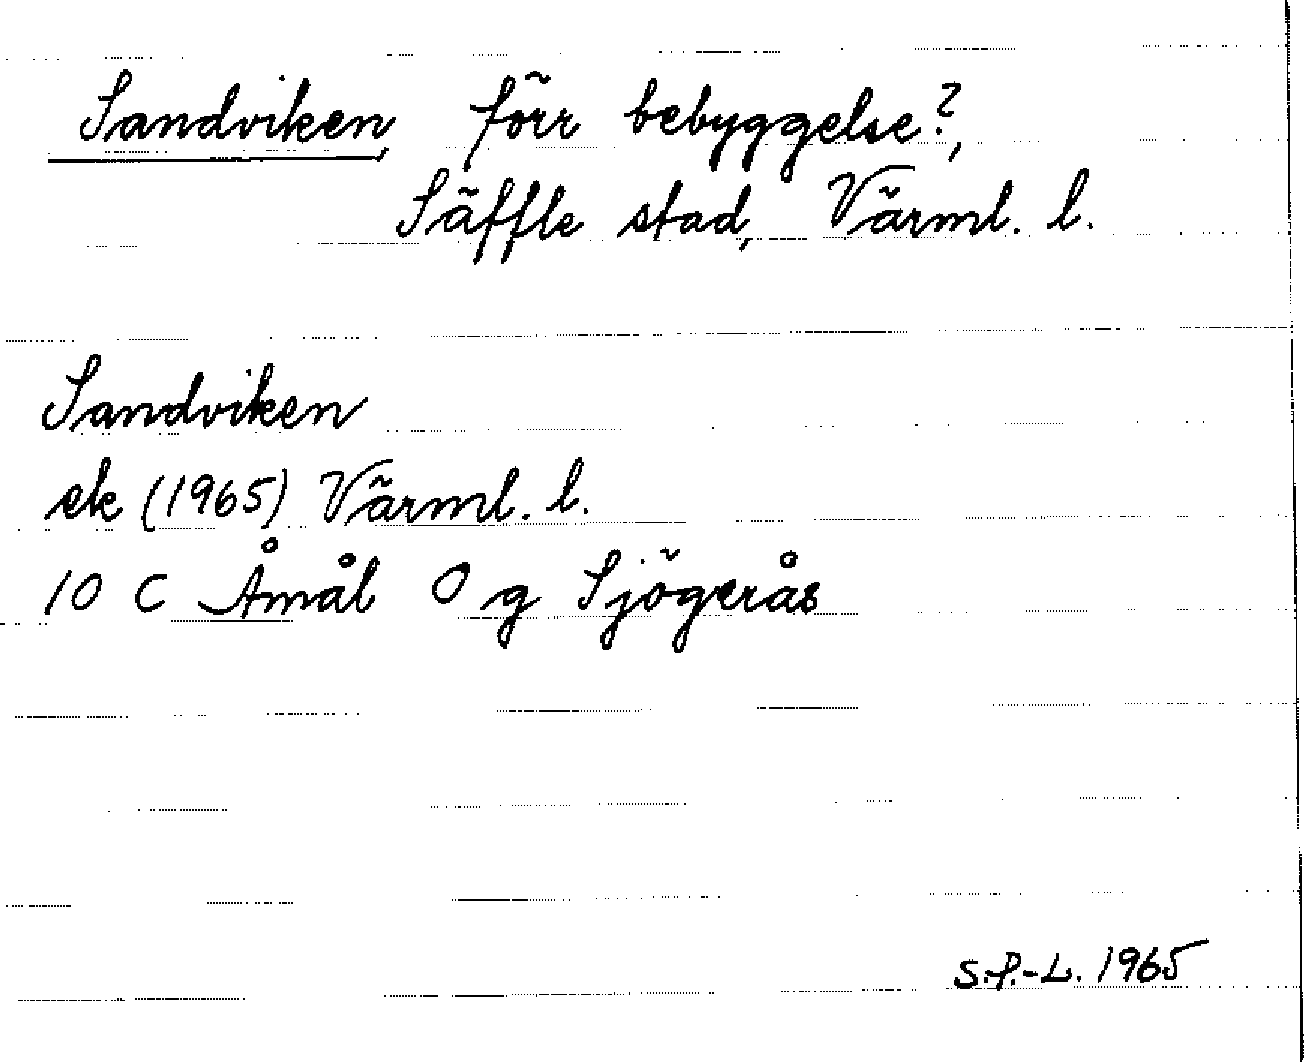 Sandviken, förr bebyggelse?,
Säffle stad, Värml. l.
Sandviken
ek (1965) Värml. l.
10 C Åmål 0 g Sjögerås
S.P.-L. 1965